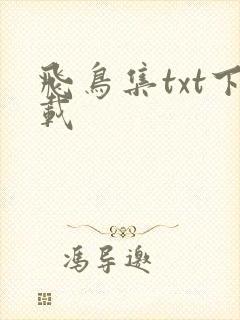 飛鳥集txt下
載
馮导邀